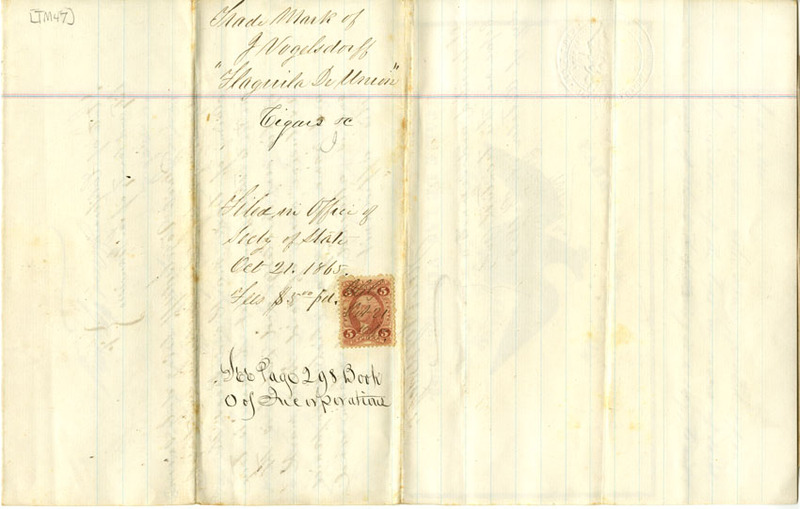 [TM47]
Trade Mark of
J Vogelsdorff
"Flaquila De Union"
Cigars &c
Filed in Office of
Secty of State
Oct 21. 1865.
Fees $5.00 pd.
5 5
Oct 21
5 5
See Page 298 Book
O of Incorporations